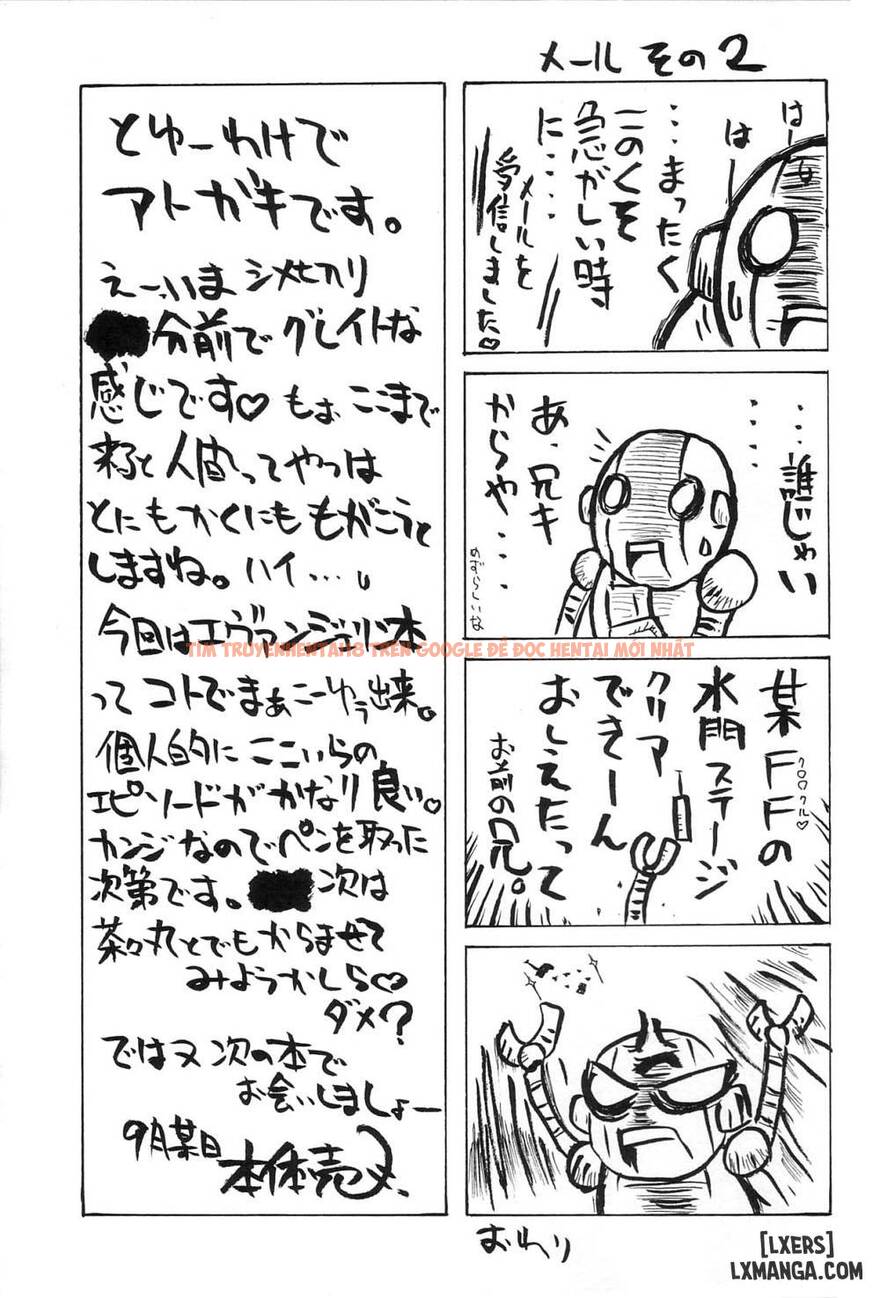 メール その2
はー
はー
…まったく
このくそ
急がしい時
に‥‥
メールを
受信しました♡
‥‥誰じゃい
‥‥
あ、兄キ
からや‥‥
めずらしいな
某FFの
クロロクル♡
水門ステージ
クリア
できーん
おしえたって
お前の兄。
おわり
とゆーわけで
アトガキです。
えーいま シメキリ
分前で グレイトな
感じです♡ もぉ ここまで
来ると 人間ってやつは
とにもかくにも もがこうと
しますね。ハイ…。
今回はエヴァンジェリン本
TÌM TRUYENHENTAI18 TRÊN GOOGLE ĐỂ ĐỌC HENTAI MỚI NHẤT
って コトでまぁこーゆう出来。
個人的に ここいらの
エピソードが かなり 良い♡
カンジなのでペンを取った
次第です。 次は
茶々丸とでもからませて
みようかしら♡
ダメ?
ではヌ 次の本で
お会いしましょー
9月某日
本体売
[LXERS]
LXMANGA.COM